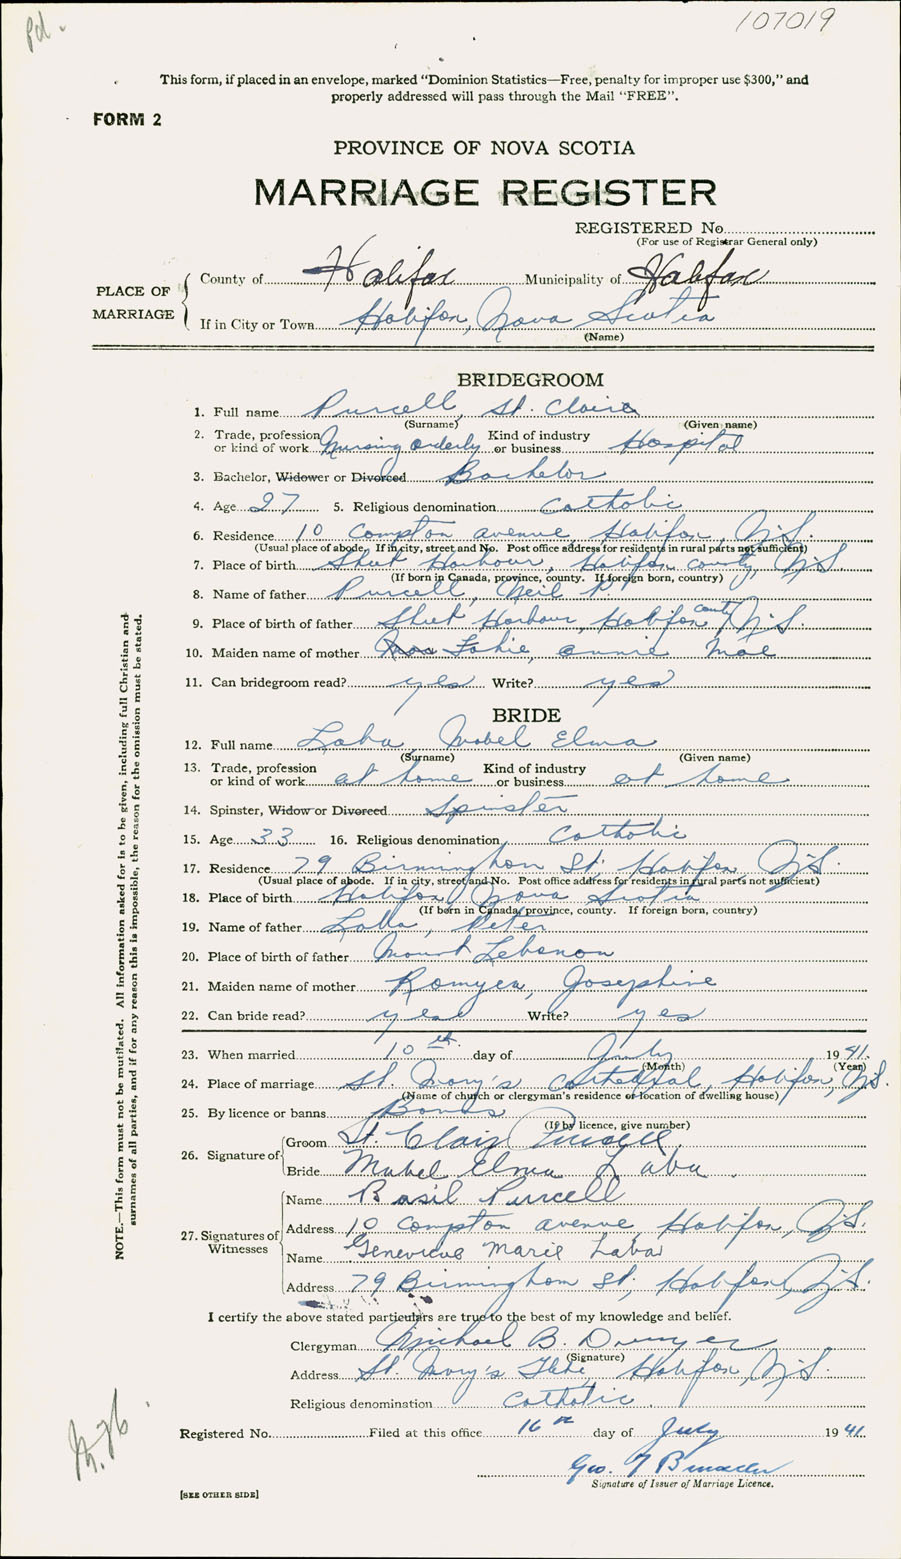 Pd.
107019
This form, if placed in an envelope, marked "Dominion Statistics—Free, penalty for improper use $300," and
properly addressed will pass through the Mail "FREE".
FORM 2
PROVINCE OF NOVA SCOTIA
MARRIAGE REGISTER
REGISTERED No
(For use of Registrar General only)
PLACE OF MARRIAGE
County of Halifax Municipality of Halifax
If in City or Town Halifax, Nova Scotia
(Name)
BRIDEGROOM
1. Full name Purcell, St. Claire
(Surname) (Given name)
2. Trade, profession or kind of work Nursing orderly Kind of industry or business Hospital
3. Bachelor, Widower or Divorced Bachelor
4. Age 27 5. Religious denomination Catholic
6. Residence 10 Compton avenue, Halifax, N.S.
(Usual place of abode. If in city, street and No. Post office address for residents in rural parts not sufficient)
7. Place of birth Sheet Harbour, Halifax county, N.S.
(If born in Canada, province, county. If foreign born, country)
8. Name of father Purcell, Neil
9. Place of birth of father Sheet Harbour, Halifax county, N.S.
10. Maiden name of mother Fahie, annie Mae
11. Can bridegroom read? yes Write? yes
BRIDE
12. Full name Laba, Mabel Elma
(Surname) (Given name)
13. Trade, profession or kind of work at home Kind of industry or business at home
14. Spinster, Widow or Divorced Spinster
15. Age 33 16. Religious denomination Catholic
17. Residence 79 Birmingham St., Halifax, N.S.
(Usual place of abode. If in city, street and No. Post office address for residents in rural parts not sufficient)
18. Place of birth Halifax, Nova Scotia
(If born in Canada, province, county. If foreign born, country)
19. Name of father Laba, Peter
20. Place of birth of father Mount Lebanon
21. Maiden name of mother Josephine
22. Can bride read? yes Write? yes
23. When married 10th day of July 1941.
(Month) (Year)
24. Place of marriage St. Mary's Cathedral, Halifax, N.S.
(Name of church or clergyman's residence or location of dwelling house)
25. By licence or banns Banns
(If by licence, give number)
26. Signature of Groom St. Clair Purcell
Bride Mabel Elma Laba.
27. Signatures of Witnesses
Name Basil Purcell
Address 10 Compton avenue, Halifax, N.S.
Name Genevieve Marie Laba
Address 79 Birmingham St., Halifax, N.S.
I certify the above stated particulars are true to the best of my knowledge and belief.
Clergyman Michael B. Dwyer
(Signature)
Address St. Mary's Glebe, Halifax, N.S.
Religious denomination Catholic.
Registered No. Filed at this office 16th day of July 1941.
Geo.
Signature of Issuer of Marriage Licence.
[SEE OTHER SIDE]
NOTE.—This form must not be mutilated. All information asked for is to be given, including full Christian and
surnames of all parties, and if for any reason this is impossible, the reason for the omission must be stated.